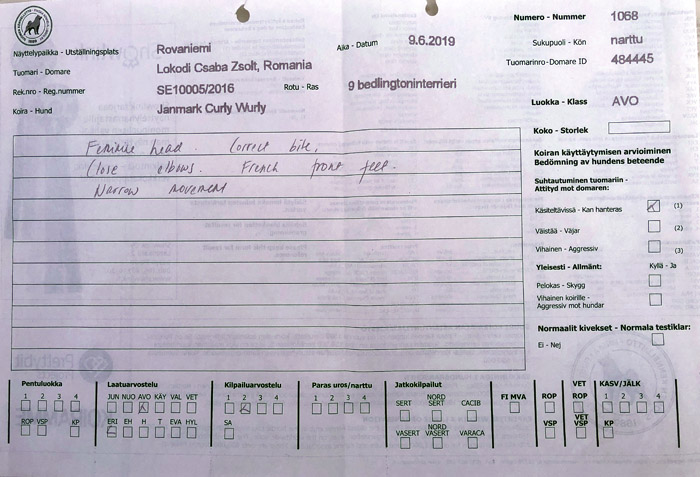 Numero - Nummer 1068
Näyttelypaikka - Utställningsplats Rovaniemi Aika - Datum 9.6.2019 Sukupuoli - Kön narttu
Tuomari - Domare Lokodi Csaba Zsolt, Romania Tuomarinro-Domare ID 484445
Rek.nro - Reg.nummer SE10005/2016 Rotu - Ras 9 bedlingtoninterrieri
Koira - Hund Janmark Curly Wurly Luokka - Klass AVO
Koko - Storlek
Feminine head. Correct bite,
Close elbows. French front feet.
Narrow movement
Koiran käyttäytymisen arvioiminen
Bedömning av hundens beteende
Suhtautuminen tuomariin -
Attityd mot domaren:
Käsiteltävissä - Kan hanteras (1)
Väistää - Väjar (2)
Vihainen - Aggressiv (3)
Yleisesti - Allmänt: Kyllä - Ja
Pelokas - Skygg
Vihainen koirille -
Aggressiv mot hundar
Normaalit kivekset - Normala testiklar:
Ei - Nej
Pentuluokka Laatuarvostelu Kilpailuarvostelu Paras uros/narttu Jatkokilpailut VET KASV/JÄLK
1 2 3 4 JUN NUO AVO KÄY VAL VET 1 2 3 4 1 2 3 4 SERT NORD SERT CACIB FI MVA ROP ROP 1 2 3 4
ROP VSP KP ERI EH H T EVA HYL SA VASERT NORD VASERT VARACA VSP VET VSP KP